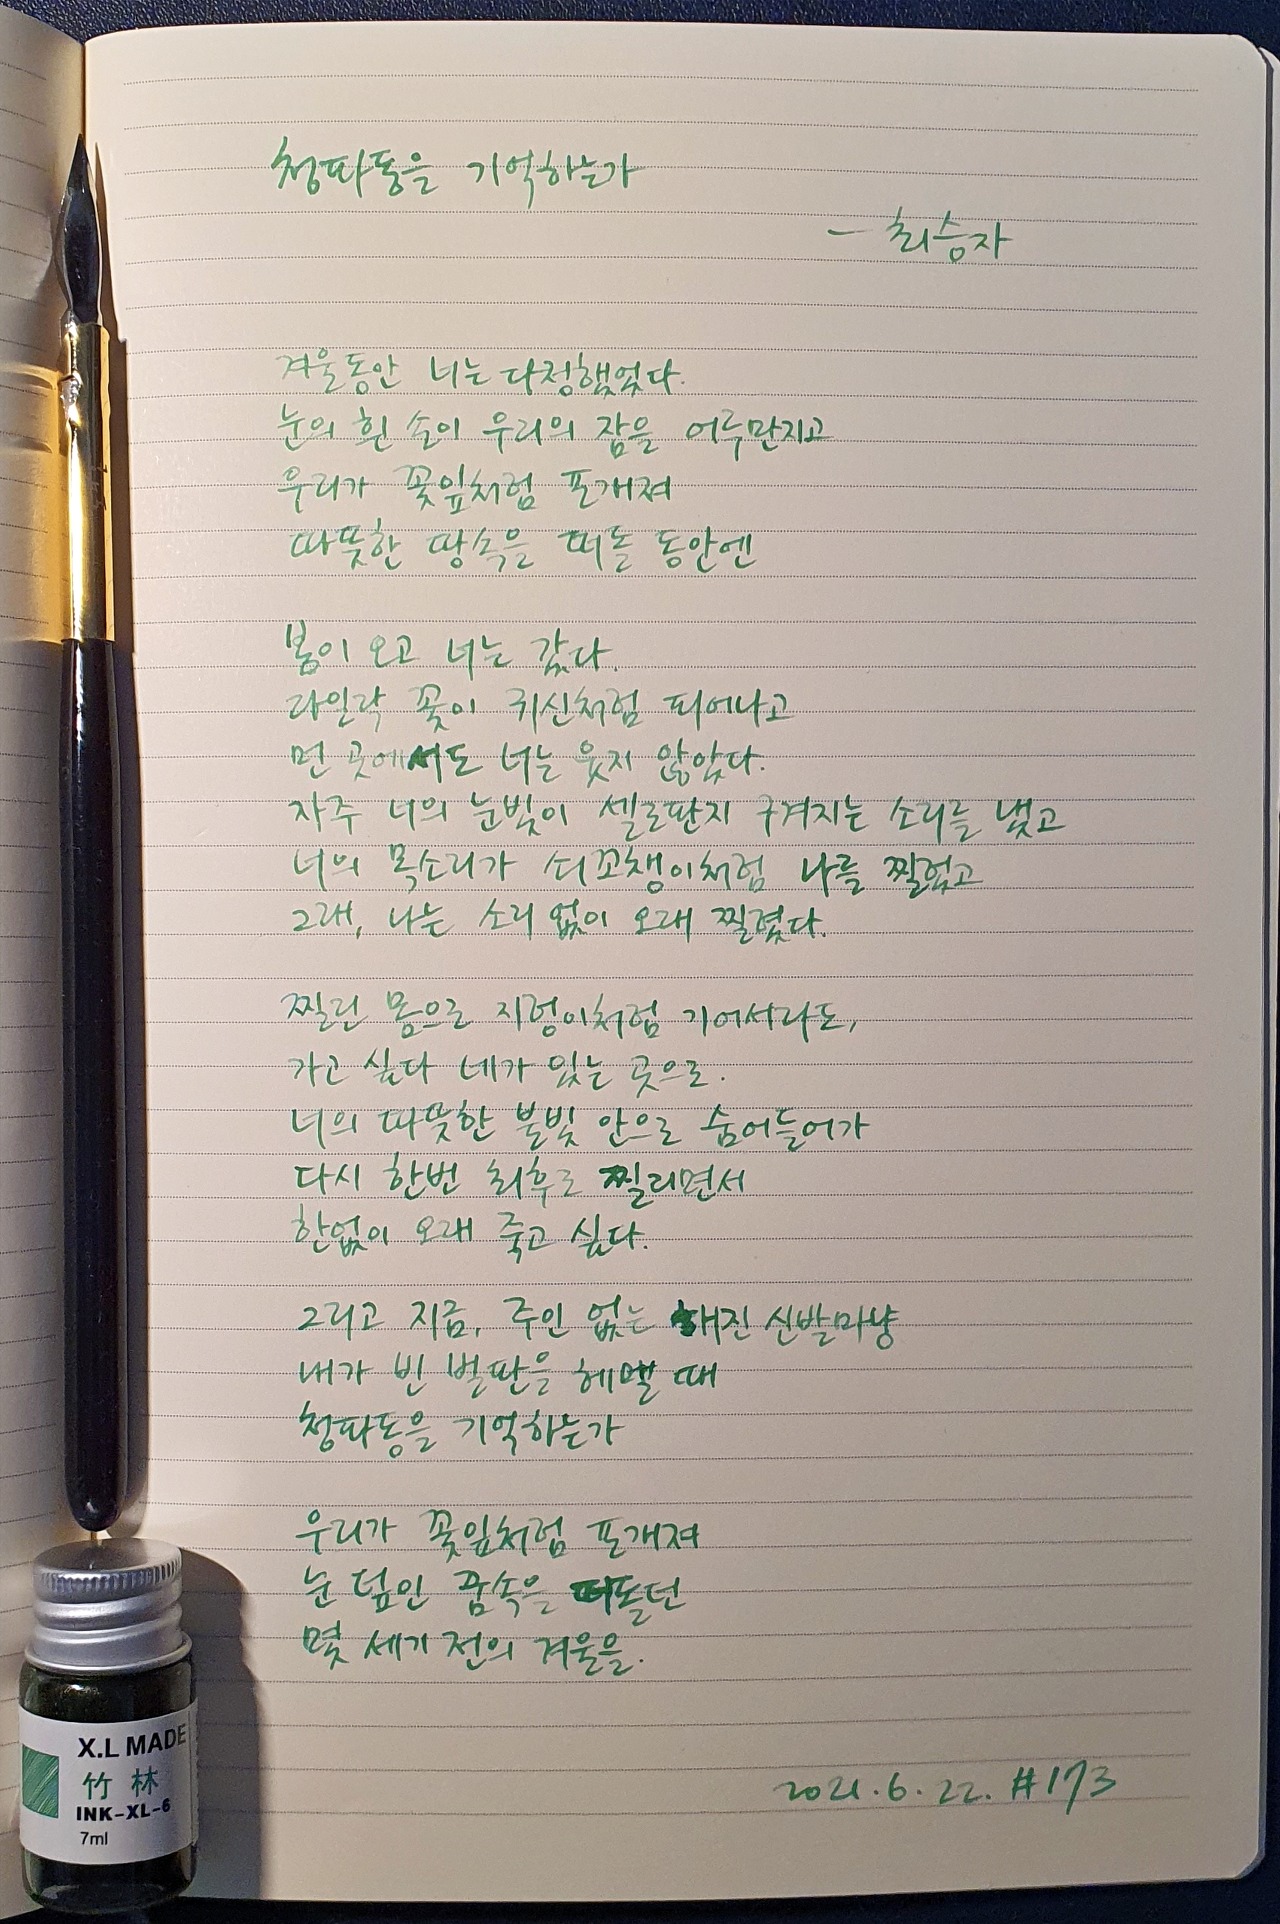 청파동을 기억하는가
- 최승자
겨울동안 너는 다정했었다.
눈의 흰 손이 우리의 잠을 어루만지고
우리가 꽃잎처럼 포개져
따뜻한 땅속을 떠돌 동안엔
봄이 오고 너는 갔다.
라일락 꽃이 귀신처럼 피어나고
먼 곳에서도 너는 웃지 않았다.
자주 너의 눈빛이 셀로판지 구겨지는 소리를 냈고
너의 목소리가 쇠꼬챙이처럼 나를 찔렀고
그래, 나는 소리 없이 오래 찔렸다.
찔린 몸으로 지렁이처럼 기어서라도,
가고 싶다 네가 있는 곳으로.
너의 따뜻한 불빛 안으로 숨어들어가
다시 한번 최후로 찔리면서
한없이 오래 죽고 싶다.
그리고 지금, 주인 없는 해진 신발마냥
내가 빈 벌판을 헤맬 때
청파동을 기억하는가
우리가 꽃잎처럼 포개져
눈 덮인 꿈속을 떠돌던
몇 세기 전의 겨울을.
2021.6.22. #173
X.L MADE
竹林
INK-XL-6
7ml